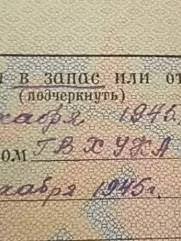 в запас или от
(подчеркнуть)
кабря 1945
ом ГВ ХУЖЛ
кабря 1945г.